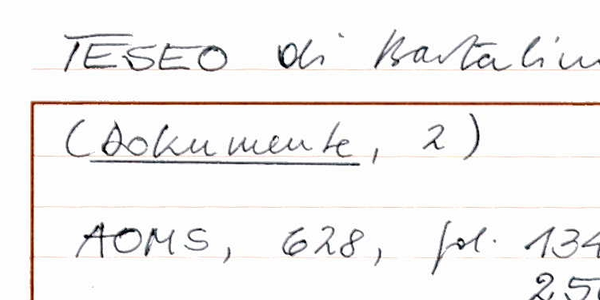 TESEO di Bartalin
(Dokumente, 2)
AOMS, 628, fol. 134
250